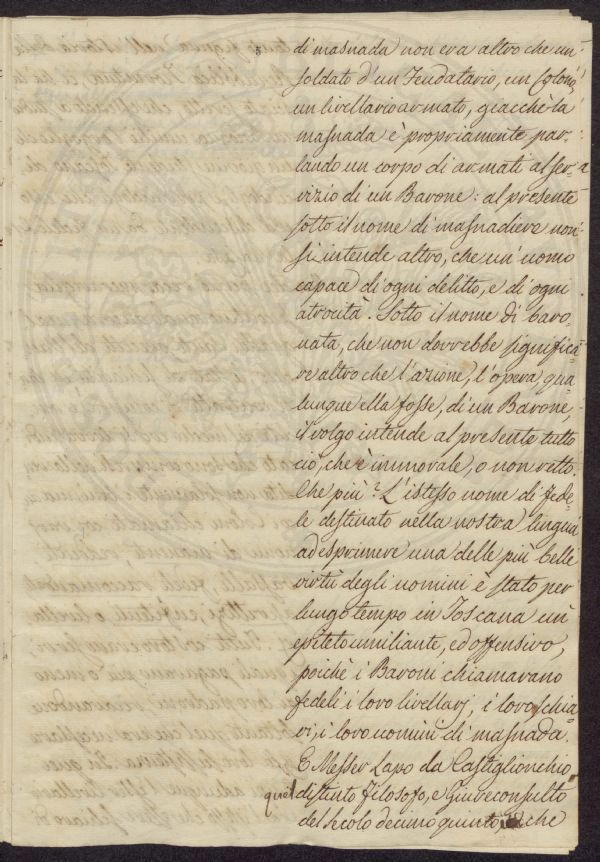 di masnada non era altro che un
soldato d'un Feudatario, un Colono,
un livellario armato, giacchè la
masnada è propriamente par-
lando un corpo di armati al ser-
vizio di un Barone: al presente
sotto il nome di masnadiere non
si intende altro, che un' uomo
capace di ogni delitto, e di ogni
atrocità. Sotto il nome di baro-
nata, che non dovrebbe significa-
re altro che l'azione, l'opera qua-
lunque ella fosse, di un Barone,
il volgo intende al presente tutto
ciò, che è immorale, o non retto.
Che più? L'istesso nome di Fede-
le destinato nella nostra lingua
ad esprimere una delle più belle
virtù degli uomini è stato per
lungo tempo in Toscana un'
epiteto umiliante, ed offensivo,
poichè i Baroni chiamavano
fedeli i loro livellarj, i loro schia-
vi, i loro uomini di masnada.
E Messer Lapo da Castiglionchio
quel distinto Filosofo, e Giureconsulto
del secolo decimo quinto, che